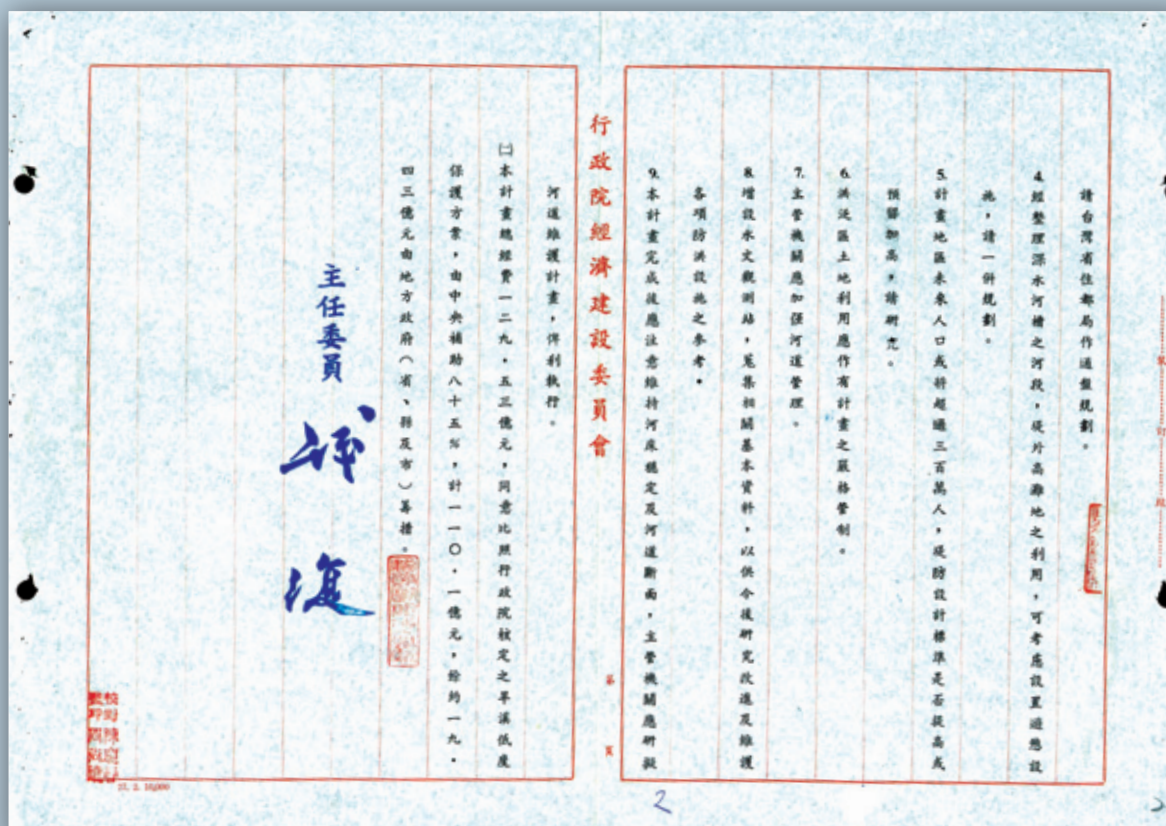 請台灣省住都局作通盤規劃。
4.經整理深水河槽之河段，堤外高灘地之利用，可考慮設置遊憩設
施，請一併規劃。
5.計畫地區未來人口或將超過三百萬人，堤防設計標準是否提高或
預留加高，請研究。
6.洪泛區土地利用應作有計畫之嚴格管制。
7.主管機關應加強河道管理。
8.增設水文觀測站，蒐集相關基本資料，以供今後研究改進及維護
各項防洪設施之參考。
9.本計畫完成後應注意維持河床穩定及河道斷面，主管機關應研擬
行政院經濟建設委員會
第 頁
河道維護計畫，俾利執行。
㈡本計畫總經費一二九．五三億元，同意比照行政院核定之旱溪低度
保護方案，由中央補助八十五％，計一一〇．一億元，餘約一九．
四三億元由地方政府（省、縣及市）籌措。
主任委員
2